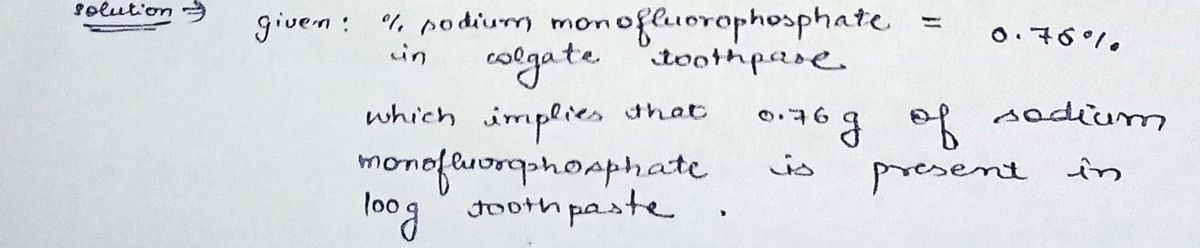 solution ⇒ given : % sodium monofluorophosphate = 0.76%
in colgate toothpase
which implies that 0.76 g of sodium
monofluorophosphate is present in
100 g toothpaste .